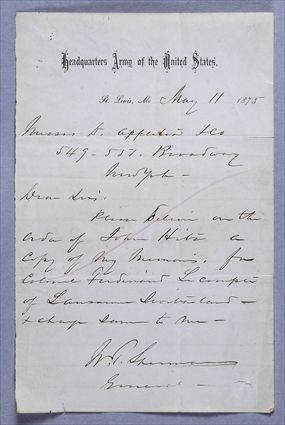 Headquarters Army of the United States.
St. Louis, Mo May 11 1875
Messrs D. Appleton & Co
549-551. Broadway
New York -
Dear Sirs.
Please Deliver on the
order of John Hitz a
Copy of My Memoirs. for
Colonel Ferdinand Lecomte
of Lausanne Switzerland -
& charge same to me -
W. T. Sherman
General -